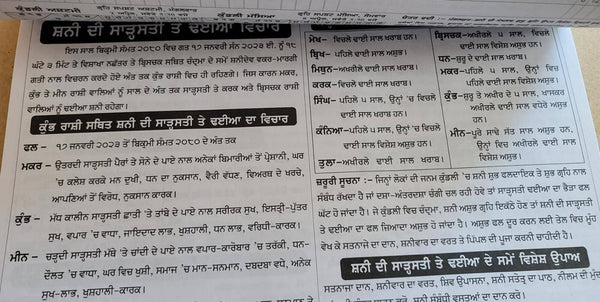 ਕੁੰਡਲੀ ਅਸ਼ਟਮੀ
ਕੁੰਡਲੀ ਮੱਸਿਆ
ਸ਼ਨੀ ਦੀ ਸਾੜ੍ਹਸਤੀ ਤੇ ਢਈਆ ਵਿਚਾਰ
ਇਸ ਸਾਲ ਬਿਕ੍ਰਮੀ ਸੰਮਤ ੨੦੮੦ ਵਿਚ ਗਤ ੧੭ ਜਨਵਰੀ ਸੰਨ ੨੦੨੩ ਈ. ਨੂੰ ੧੮
ਘੰਟੇ ੨ ਮਿੰਟ ਤੇ ਵਿਸ਼ਾਖਾ ਨਛੱਤਰ ਤੇ ਬ੍ਰਿਸ਼ਚਕ ਸਥਿਤ ਚੰਦ੍ਰਮਾ ਦੇ ਸਮੇਂ ਸ਼ਨੀਦੇਵ ਵਕਰ-ਮਾਰਗੀ
ਗਤੀ ਨਾਲ ਵਿਚਰਨ ਕਰਦੇ ਹੋਏ ਅੰਤ ਤਕ ਕੁੰਭ ਰਾਸ਼ੀ ਵਿਚ ਹੀ ਰਹਿਣਗੇ। ਜਿਸ ਕਾਰਨ ਮਕਰ,
ਕੁੰਭ ਤੇ ਮੀਨ ਰਾਸ਼ੀ ਵਾਲਿਆਂ ਨੂੰ ਸਾਲ ਦੇ ਅੰਤ ਤਕ ਸਾੜ੍ਹਸਤੀ ਤੇ ਕਰਕ ਅਤੇ ਬ੍ਰਿਸਚਕ ਰਾਸ਼ੀ
ਵਾਲਿਆਂ ਨੂੰ ਢਈਆ ਸ਼ਨੀ ਰਹੇਗਾ।
ਕੁੰਭ ਰਾਸ਼ੀ ਸਥਿਤ ਸ਼ਨੀ ਦੀ ਸਾੜ੍ਹਸਤੀ ਤੇ ਢਈਆ ਦਾ ਵਿਚਾਰ
ਫਲ – ੧੭ ਜਨਵਰੀ ੨੦੨੩ ਤੋਂ ਬਿਕ੍ਰਮੀ ਸੰਮਤ ੨੦੮੦ ਦੇ ਅੰਤ ਤਕ
ਮਕਰ – ਉਤਰਦੀ ਸਾੜ੍ਹਸਤੀ ਪੈਰਾਂ ਤੇ ਸੋਨੇ ਦੇ ਪਾਏ ਨਾਲ ਅਨੇਕਾਂ ਬਿਮਾਰੀਆਂ ਤੋਂ ਪ੍ਰੇਸ਼ਾਨੀ, ਘਰ
'ਚ ਕਲੇਸ਼ ਕਰਕੇ ਮਨ ਦੁਖੀ, ਧਨ ਦਾ ਨੁਕਸਾਨ, ਵੈਰੀ ਵੱਧਣ, ਵਿਅਰਥ ਦੇ ਖਰਚੇ,
ਆਪਣਿਆਂ ਤੋਂ ਵਿਰੋਧ, ਨੁਕਸਾਨ ਕਾਰਕ।
ਕੁੰਭ – ਮੱਧ ਕਾਲੀਨ ਸਾੜ੍ਹਸਤੀ ਛਾਤੀ 'ਤੇ ਤਾਂਬੇ ਦੇ ਪਾਏ ਨਾਲ ਸਰੀਰਕ ਸੁਖ, ਇਸਤ੍ਰੀ-ਪੁੱਤਰ
ਸੁਖ, ਵਪਾਰ 'ਚ ਵਾਧਾ, ਜਾਇਦਾਦ ਲਾਭ, ਖੁਸ਼ਹਾਲੀ, ਧਨ ਲਾਭ, ਵਰਿਧੀ-ਕਾਰਕ।
ਮੀਨ – ਚੜ੍ਹਦੀ ਸਾੜ੍ਹਸਤੀ ਮੱਥੇ 'ਤੇ ਚਾਂਦੀ ਦੇ ਪਾਏ ਨਾਲ ਵਪਾਰ-ਕਾਰੋਬਾਰ 'ਚ ਤਰੱਕੀ, ਧਨ-
ਦੌਲਤ 'ਚ ਵਾਧਾ, ਘਰ ਵਿਚ ਖੁਸ਼ੀ, ਸਮਾਜ 'ਚ ਮਾਨ-ਸਨਮਾਨ, ਦਬਦਬਾ ਵਧੇ, ਅਨੇਕ
ਸੁਖ-ਲਾਭ, ਖੁਸ਼ਹਾਲੀ-ਕਾਰਕ।
ਮੇਖ– ਵਿਚਲੇ ਢਾਈ ਸਾਲ ਖਰਾਬ ਹਨ।
ਬ੍ਰਿਖ– ਪਹਿਲੇ ਢਾਈ ਸਾਲ ਅਸ਼ੁਭ।
ਮਿਥੁਨ– ਅਖੀਰਲੇ ਢਾਈ ਸਾਲ ਖਰਾਬ।
ਕਰਕ– ਵਿਚਲੇ ਢਾਈ ਸਾਲ ਖਰਾਬ ਹਨ।
ਸਿੰਘ– ਪਹਿਲੇ ੫ ਸਾਲ, ਉਨ੍ਹਾਂ 'ਚ ਵਿਚਲੇ
ਢਾਈ ਸਾਲ ਵਿਸ਼ੇਸ਼ ਅਸ਼ੁਭ।
ਕੰਨਿਆ– ਪਹਿਲੇ ੫ ਸਾਲ, ਉਨ੍ਹਾਂ 'ਚ ਪਹਿਲੇ
ਢਾਈ ਸਾਲ ਵਿਸ਼ੇਸ਼ ਅਸ਼ੁਭ।
ਤੁਲਾ– ਅਖੀਰਲੇ ਢਾਈ ਸਾਲ ਖਰਾਬ।
ਬ੍ਰਿਸਚਕ–ਅਖੀਰਲੇ ੫ ਸਾਲ, ਉਨ੍ਹਾਂ 'ਚ ਵਿਚਲੇ
ਢਾਈ ਸਾਲ ਵਿਸ਼ੇਸ਼ ਅਸ਼ੁਭ।
ਧਨ–ਸ਼ੁਰੂ ਦੇ ਢਾਈ ਸਾਲ ਅਸ਼ੁਭ।
ਮਕਰ–ਪਹਿਲੇ ੫ ਸਾਲ, ਉਨ੍ਹਾਂ 'ਚ ਪਹਿਲੇ
ਢਾਈ ਸਾਲ ਵਿਸ਼ੇਸ਼ ਅਸ਼ੁਭ।
ਕੁੰਭ–ਸ਼ੁਰੂ ਤੇ ਅਖੀਰ ਦੇ ੫ ਸਾਲ, ਅਖੀਰਲੇ
ਢਾਈ ਸਾਲ ਵਧੇਰੇ ਅਸ਼ੁਭ
ਹਨ।
ਮੀਨ–ਪੂਰੇ ਸਾਢੇ ਸੱਤ ਸਾਲ ਅਸ਼ੁਭ ਹਨ,
ਉਨ੍ਹਾਂ 'ਚ ਅਖੀਰਲੇ ਢਾਈ ਸਾਲ
ਵਿਸ਼ੇਸ਼ ਅਸ਼ੁਭ।
ਜ਼ਰੂਰੀ ਸੂਚਨਾ :– ਜਿਨ੍ਹਾਂ ਲੋਕਾਂ ਦੀ ਜਨਮ ਕੁੰਡਲੀ 'ਚ ਸ਼ਨੀ ਸ਼ੁਭ ਫਲਦਾਇਕ ਤੇ ਸ਼ੁਭ ਗ੍ਰਹਿ ਨਾਲ
ਸੰਬੰਧ ਰੱਖਦਾ ਹੈ ਜਾਂ ਦਸ਼ਾ-ਅੰਤਰਦਸ਼ਾ ਚੰਗੀ ਚਲ ਰਹੀ ਹੋਵੇ ਤਾਂ ਸਾੜ੍ਹਸਤੀ ਢਈਆ ਦਾ ਭੈੜਾ ਫਲ
ਘੱਟ ਹੋ ਜਾਂਦਾ ਹੈ। ਜੇ ਕੁੰਡਲੀ ਵਿਚ ਚੰਦ੍ਰਮਾ, ਸ਼ਨੀ ਅਸ਼ੁਭ ਗ੍ਰਹਿ ਇਕੱਠੇ ਹੋਣ ਤਾਂ ਸ਼ਨੀ ਦੀ ਸਾੜ੍ਹਸਤੀ
ਤੇ ਢਈਆ ਦਾ ਫਲ ਜ਼ਿਆਦਾ ਅਸ਼ੁਭ ਹੋ ਜਾਂਦਾ ਹੈ। ਅਸ਼ੁਭ ਫਲ ਦੂਰ ਕਰਨ ਲਈ ਤੇਲ ਵਿਚ ਮੂੰਹ
ਵੇਖ ਕੇ ਸਤਨਾਜੇ ਦਾ ਦਾਨ, ਸ਼ਨੀਵਾਰ ਦਾ ਵਰਤ ਤੇ ਪਿੱਪਲ ਦੀ ਪੂਜਾ ਕਰਨੀ ਚਾਹੀਦੀ ਹੈ।
ਸ਼ਨੀ ਦੀ ਸਾੜ੍ਹਸਤੀ ਤੇ ਢਈਆ ਦੇ ਸਮੇਂ ਵਿਸ਼ੇਸ਼ ਉਪਾਅ
ਸਤਨਾਜਾ ਦਾ ਦਾਨ, ਸ਼ਨੀਵਾਰ ਦਾ ਵਰਤ, ਸ਼ਿਵ ਉਪਾਸਨਾ, ਸ਼ਨੀ ਸਤੋਤ੍ਰ ਦਾ ਪਾਠ, ਨੀਲਮ ਦੀ ਮੁੰਦਰੀ